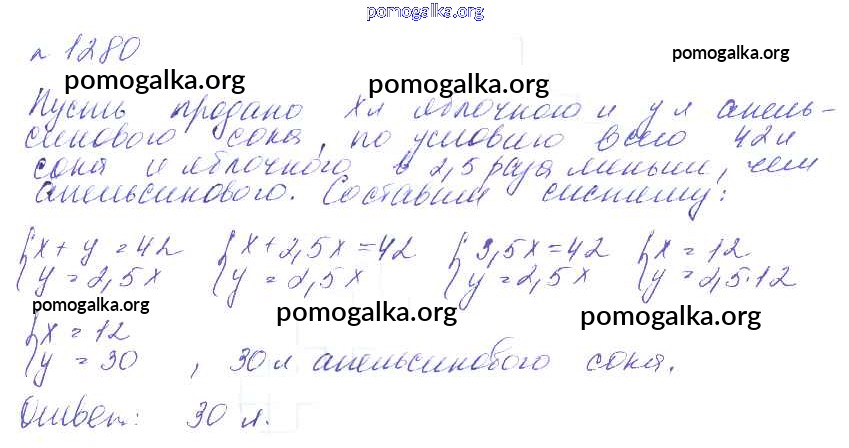 pomogalka.org
n 1280
pomogalka.org pomogalka.org pomogalka.org
Пусть продано x л яблочного и y л апель-
синового сока, по условию всего 42 л
сока и яблочного в 2,5 раза меньше, чем
апельсинового. Составим систему:
{x + y = 42 {x + 2,5x = 42 {3,5x = 42 {x = 12
{y = 2,5x {y = 2,5x {y = 2,5x {y = 2,5·12
pomogalka.org pomogalka.org pomogalka.org
{x = 12
{y = 30 , 30 л апельсинового сока.
Ответ: 30 л.